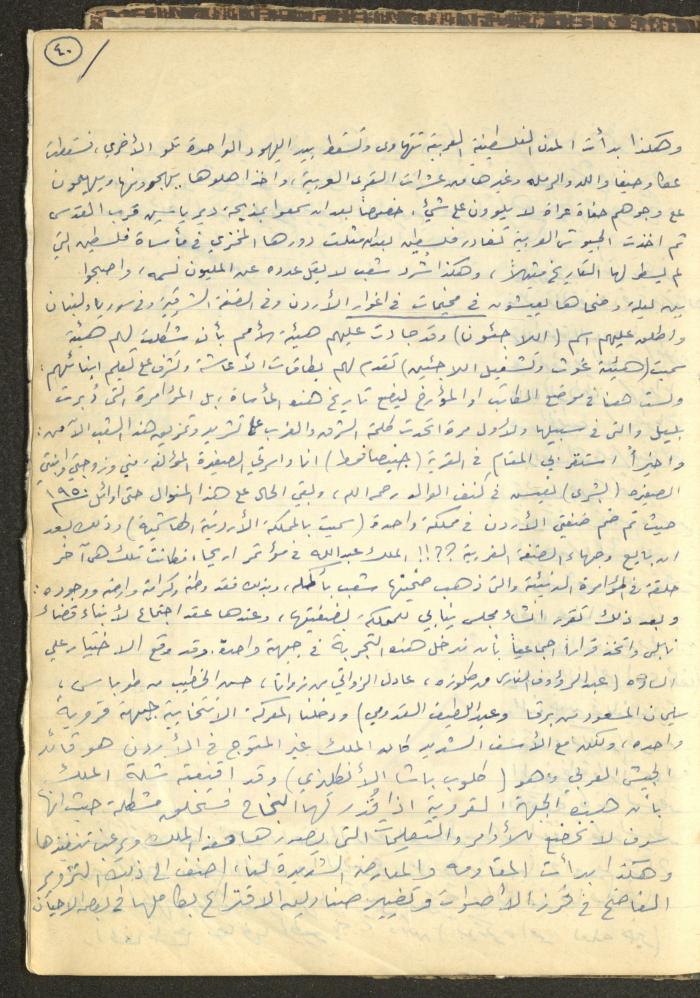 ٤٠
وهكذا بدأت المدن الفلسطينية العربية تتهاوى وتسقط بيد اليهود الواحدة تلو الأخرى، فسقطت
عكا وحيفا واللد والرمله وغيرها من عشرات القرى العربية، واخذ اهلوها يهجرونها ويهيمون
على وجوههم حفاة عراة لا يلوون على شيء، خصوصاً بعد ان سمعوا بمذبحة دير ياسين قرب القدس
ثم اخذت الجيوش العربية تغادر فلسطين بعد ان مثلت دورها المخزي في مأساة فلسطين التي
لم يسطر لها التاريخ مثيلاً، وهكذا شُرد شعب لا يقل عدده عن المليون نسمه، واصبحوا
بين ليلة وضحاها يعيشون في مخيمات في اغوار الأردن وفي الضفة الشرقية وفي سوريا ولبنان
واطلق عليهم اسم (اللاجئون) وقد جادت عليهم هيئة الأمم بأن شكلت لهم هيئة
سميت (هيئة غوث وتشغيل اللاجئين) تقدم لهم بطاقات الأعاشة وتشرف على تعليم ابنائهم:
ولست هنا في موضع الكاتب او المؤرخ ليضع تاريخ هذه المأساة، بل المؤامرة التي دُبرت
بليل والتي في سبيلها ولأول مرة اتحدت كلمة الشرق والغرب على تشريد وتمزيق هذا الشعب الآمن:
واخيراً استقر بي المقام في القرية (جينصافوط) انا واسرتي الصغيرة المؤلفة مني وزوجتي وابنتي
الصغيره (بشرى) لنعيش في كنف الوالد رحمه الله، وبقي الحال على هذا المنوال حتى اوائل ١٩٥٠
حيث تم ضم ضفتي الأردن في مملكة واحدة (سميت بالمملكة الأردنية الهاشمية) وذلك بعد
ان بايع وجهاء الضفة الغربية ??!! الملك عبدالله في مؤتمر اريحا، فكانت تلك هي آخر
حلقة في المؤامرة الدنيئة والتي ذهب ضحيتها شعب بأكمله، وبذلك فقد وطنه وكرامته وارضه ووجوده:
وبعد ذلك تقرر انشاء مجلس نيابي للمملكة لضفتيها، وعندها عقد اجتماع لأبناء قضاء
نابلس واتخذ قراراً اجماعياً بأن ندخل هذه التجربة في جبهة واحدة. وقد وقع الاختيار على
السادة (عبدالرؤوف الفارس من طلوزه، عادل الزواتي من زواتا، حسن الخطيب من طوباس،
سليمان المسعود من برقا وعبداللطيف القدومي) ودخلنا المعركة الانتخابية جبهة قروية
واحده، ولكن مع الأسف الشديد كان الملك غير المتوج في الأردن هو قائد
الجيش العربي وهو (كلوب باشا الأنكليزي) وقد اقنعته شلة الملك
بأن هذه الجبهة القروية اذا قُدر لها النجاح فستخلق مشكلة حيث انها
سوف لا تخضع للأوامر والتعليمات التي يصدرها هذا الملك ويرغب تنفيذها
وهكذا بدأت المقاومه والمعارضه الشديدة لنا، اضف الى ذلك التزوير
الفاضح في فرز الأصوات وتغيير صناديق الاقتراع بكاملها في بعض الاحيان